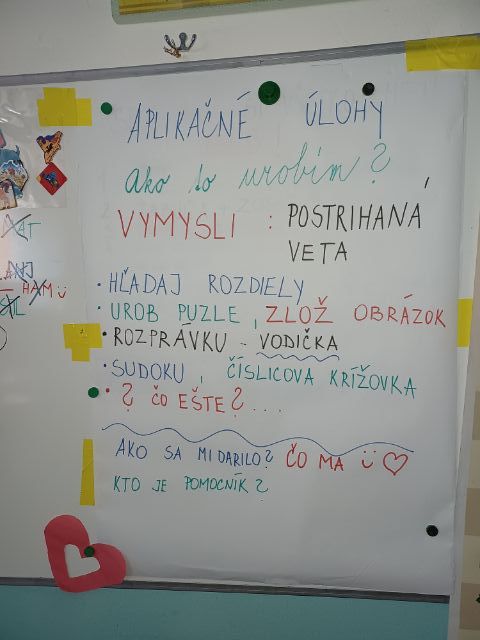 APLIKAČNÉ ÚLOHY
Ako to urobím?
VYMYSLI : POSTRIHANÁ
VETA
• HĽADAJ ROZDIELY
• UROB PUZLE, ZLOŽ OBRÁZOK
• ROZPRÁVKU - VODIČKA
• SUDOKU, ČÍSLICOVA KRÍŽOVKA
• ? ČO EŠTE? ...
AKO SA MI DARILO? ČO MA ☺ ♡
KTO JE POMOCNÍK?
HAM